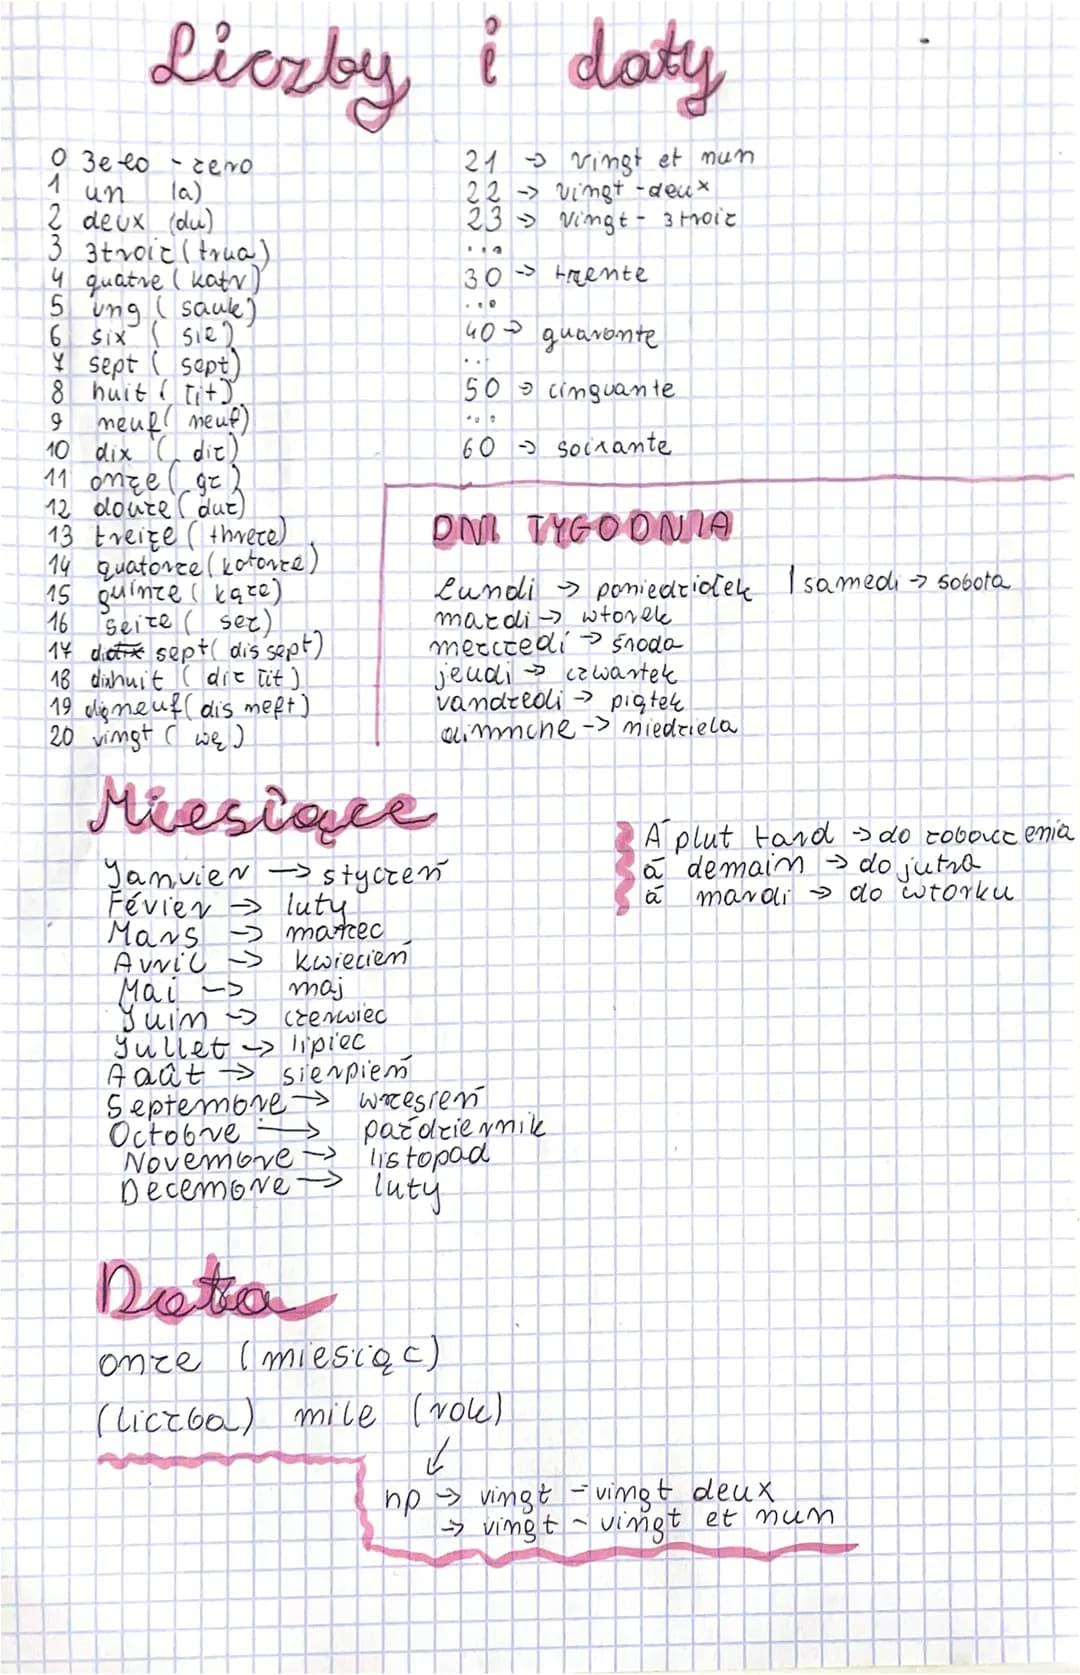 Liczby i daty
0 3e ło - zero
1 un (a)
2 deux (du)
3 3troiz (trua)
4 quatre (katr)
5 ung (sauk)
6 six (sie)
7 sept (sept)
8 huit (tit)
9 neuf (neuf)
10 dix (diz)
11 onze (gz)
12 douze (duz)
13 treize (threze)
14 quatorze (kotorze)
15 quinze (kąze)
16 seize (sez)
17 sept (dis sept)
18 dixhuit (diz tit)
19 digneuf (dis neft)
20 vingt (wę)
21 → vingt et nun
22 → vingt - deux
23 → vingt - 3troiz
...
30 → trente
...
40 → quaronte
...
50 → cinquante
...
60 → soixante
DNI TYGODNIA
Lundi → poniedziołek | samedi → sobota
mardi → wtorek
mercredi → środa
jeudi → czwartek
vandredi → piątek
dimnche → niedziela
Miesiące
Janvier → styczeń
Févier → luty
Mars → marzec
Avril → kwiecień
Mai → maj
Juin → czerwiec
Jullet → lipiec
Aaût → sierpień
Septembre → wrzesień
Octobre → październik
Novembre → listopad
Decembre → luty
Á plut tard → do zoboczenia
á demain → do jutra
á mardi → do wtorku
Data
onze (miesiąc)
(liczba) mile (rok)
np → vingt - vingt deux
→ vingt - vingt et nun